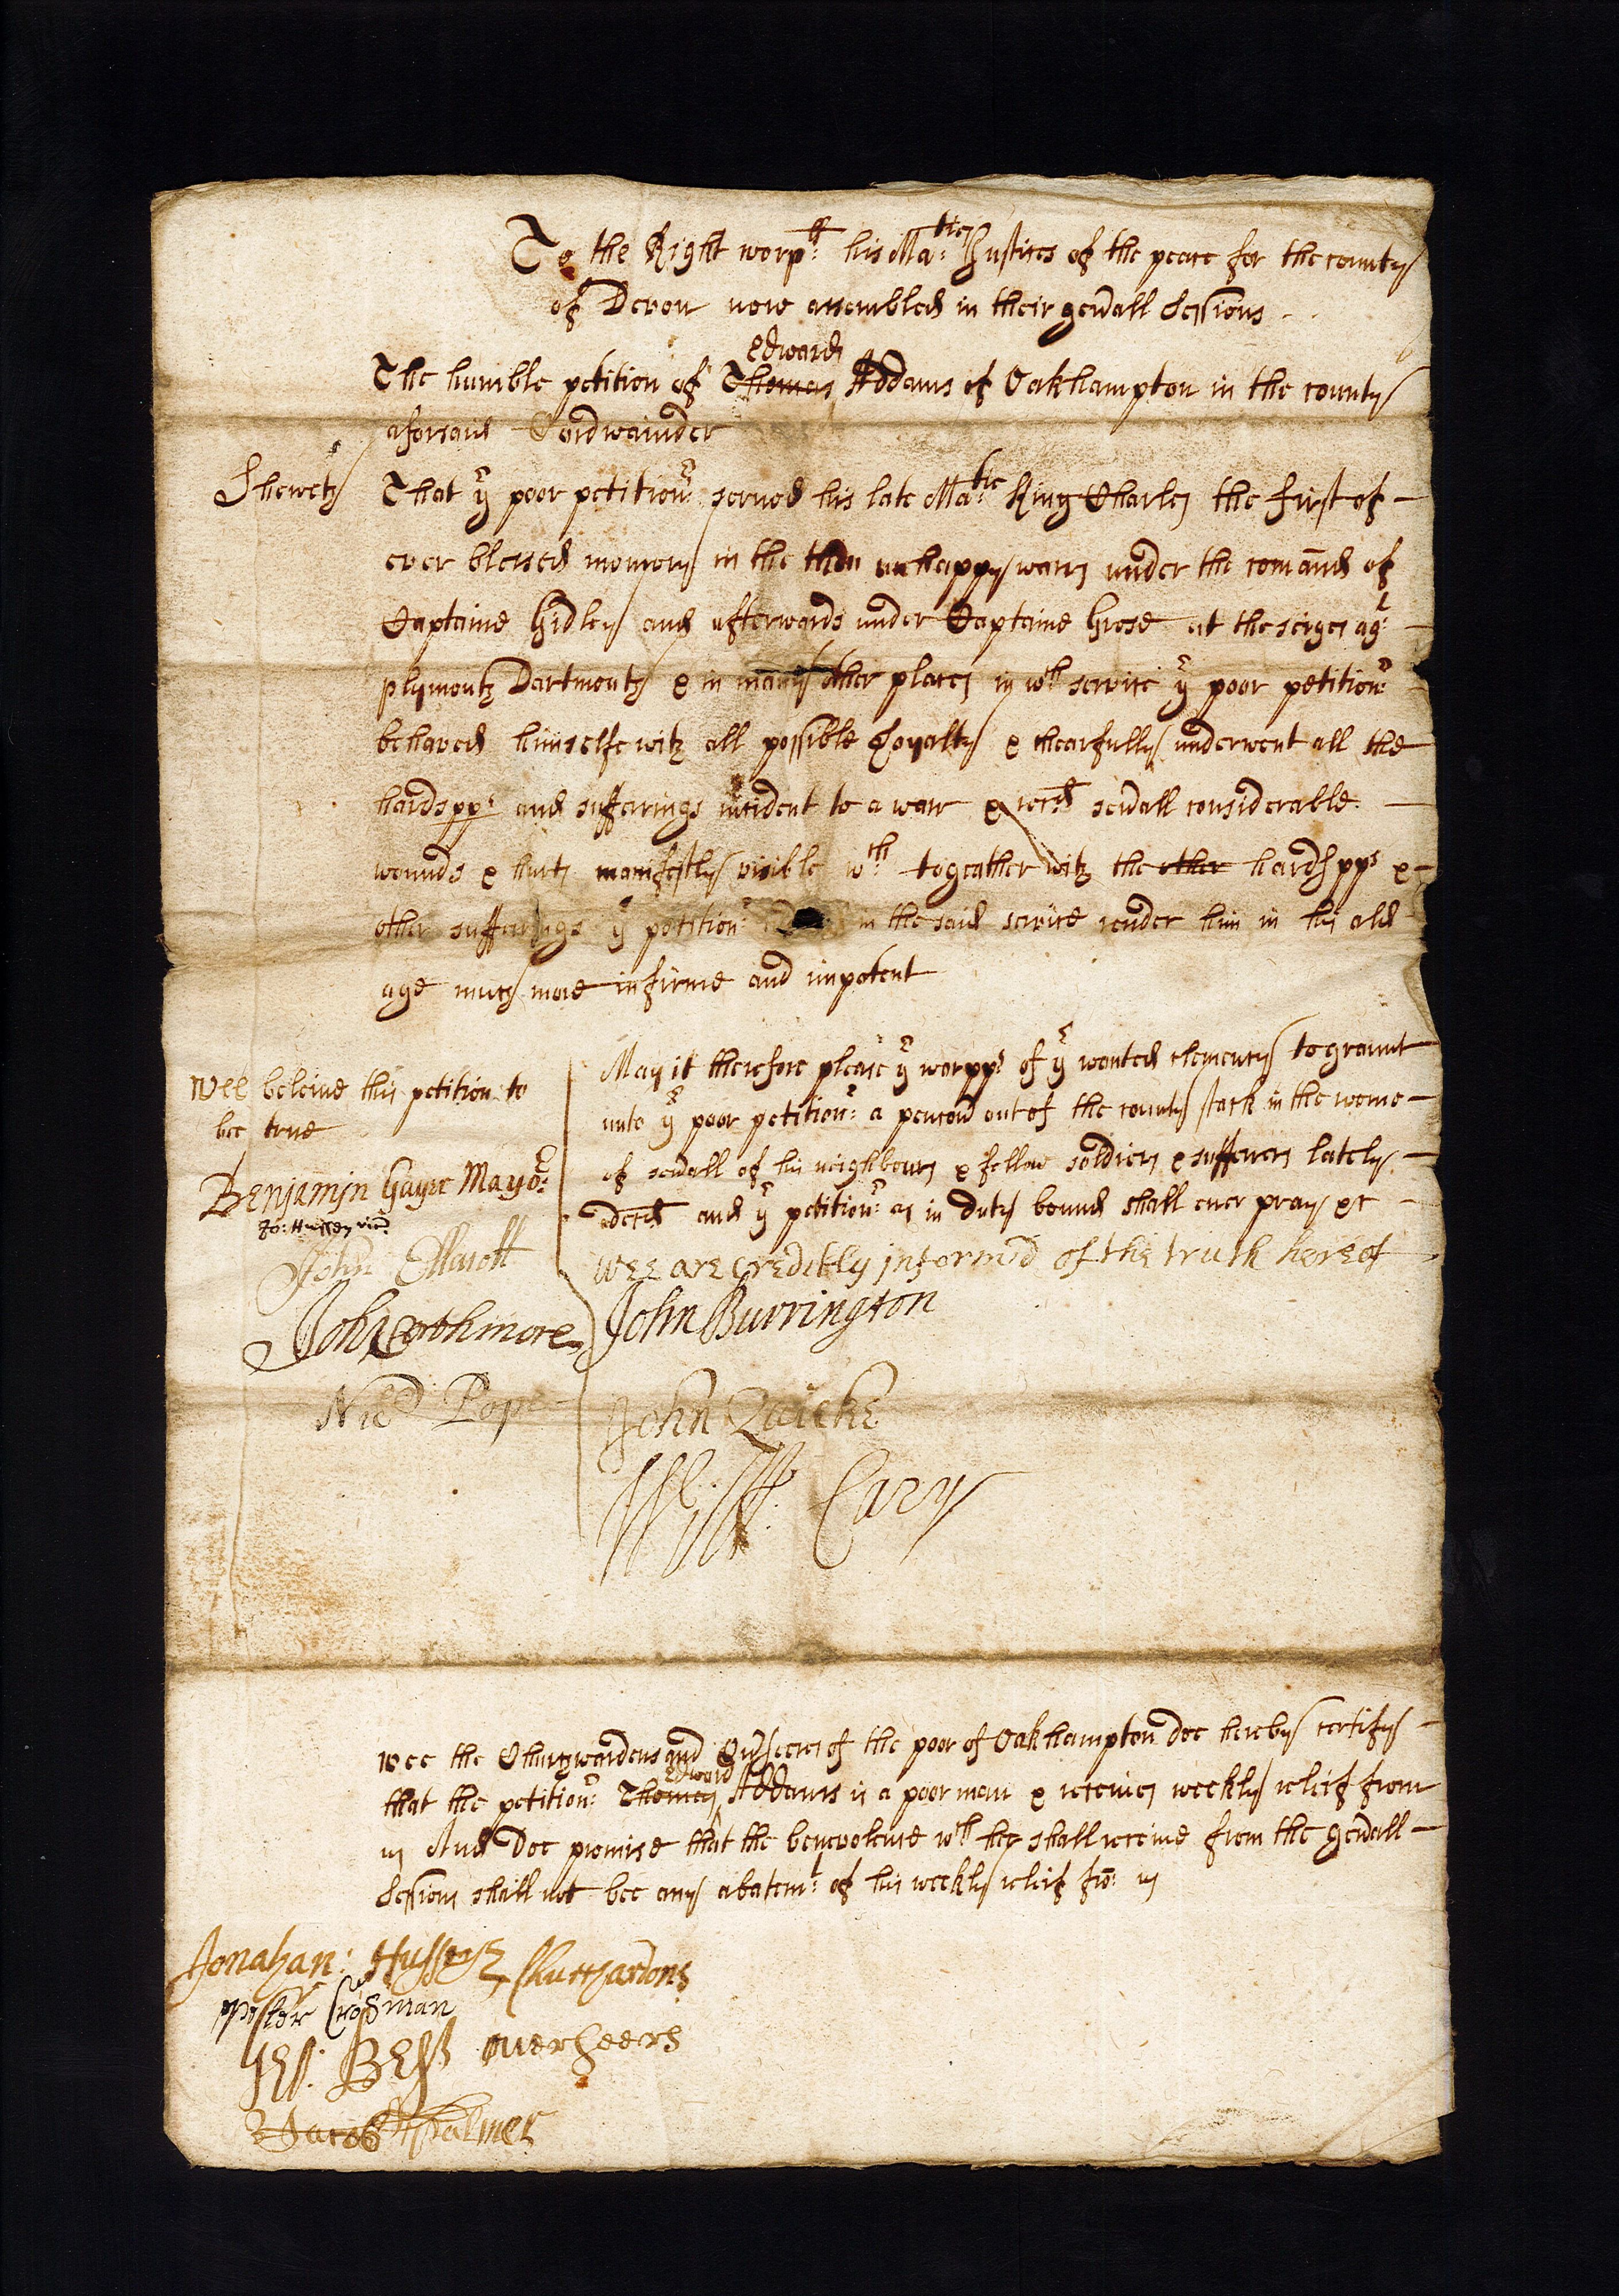 To the Right worpll: his Maties: Justices of the peace for the county
of Devon now assembled in their gen'all Sessions
The humble petition of Thomas Edward Addams of Oakhampton in the county
aforsaid Cordwainder
Sheweth That yr poor petitionr: served his late Matie: King Charles the first of
ever blessed memory in the then unhappy warrs under the comānd of
Captaine Gidley and afterwards under Captaine Grose at the seiges agt:
plymouth Dartmouth & in many other places in wch service yr poor petitionr:
behaved himselfe with all possible Loyalty & chearfully underwent all the
hardspps and sufferings incident to a warr & recd sev'all considerable
wounds & hurts manifestly visible wch: togeather with the other hardspps &
other sufferings yr petitionr: in the said service render him in his old
age much more infirme and impotent
May it therefore please yr worpps of yr wonted clemency to graunt
unto yr poor petitionr: a pencon out of the county stock in the rome
of sev'all of his neighbours & fellow soldiers & sufferers lately
deced and yr petitionr: as in duty bound shall ever pray &c
Wee beleive this petition to
bee true
Benjamin Gayer Mayor:
Jo: Hussey vicr
John Ellacott
John Cothmore
Nic Pope
Wee are credibly informd of the truth hereof
John Burrington
John Quicke
Will: Cary
Wee the Churchwardens and Ov'seers of the poor of Oakhampton doe hereby certify
that the petitionr: Thomas Edward Addams is a poor man & receives weekly releif from
us And doe promise that the benevolence wch hee shall receive from the gen'all
Sessions shall not bee any abatemt: of his weekly releif frō: us
Jonahan: Hussey Churchardons
Crosman
Best overseers
Jacob Palmer